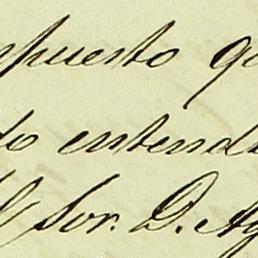 spuesto qu
do entendi
l Sor. D. Ag